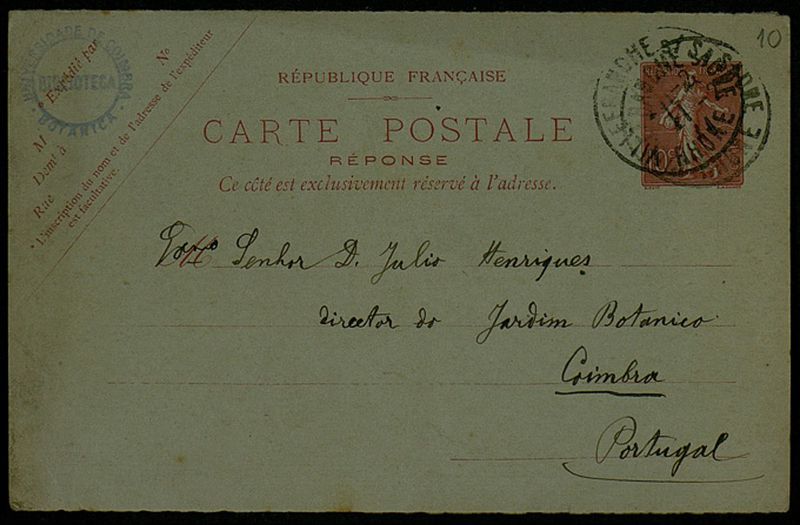 10
UNIVERSIDADE DE COIMBRA
BIBLIOTECA
BOTANICA
Expédié par
M
Demt à
Rue
No
* L'inscription du nom et de l'adresse de l'expéditeur
est facultative.
RÉPUBLIQUE FRANÇAISE
CARTE POSTALE
RÉPONSE
Ce côté est exclusivement réservé à l'adresse.
VILLEFRANCHE S/ SAONE
RHONE
10c
Exmo Senhor D. Julio Henriques
director do Jardim Botanico
Coimbra
Portugal